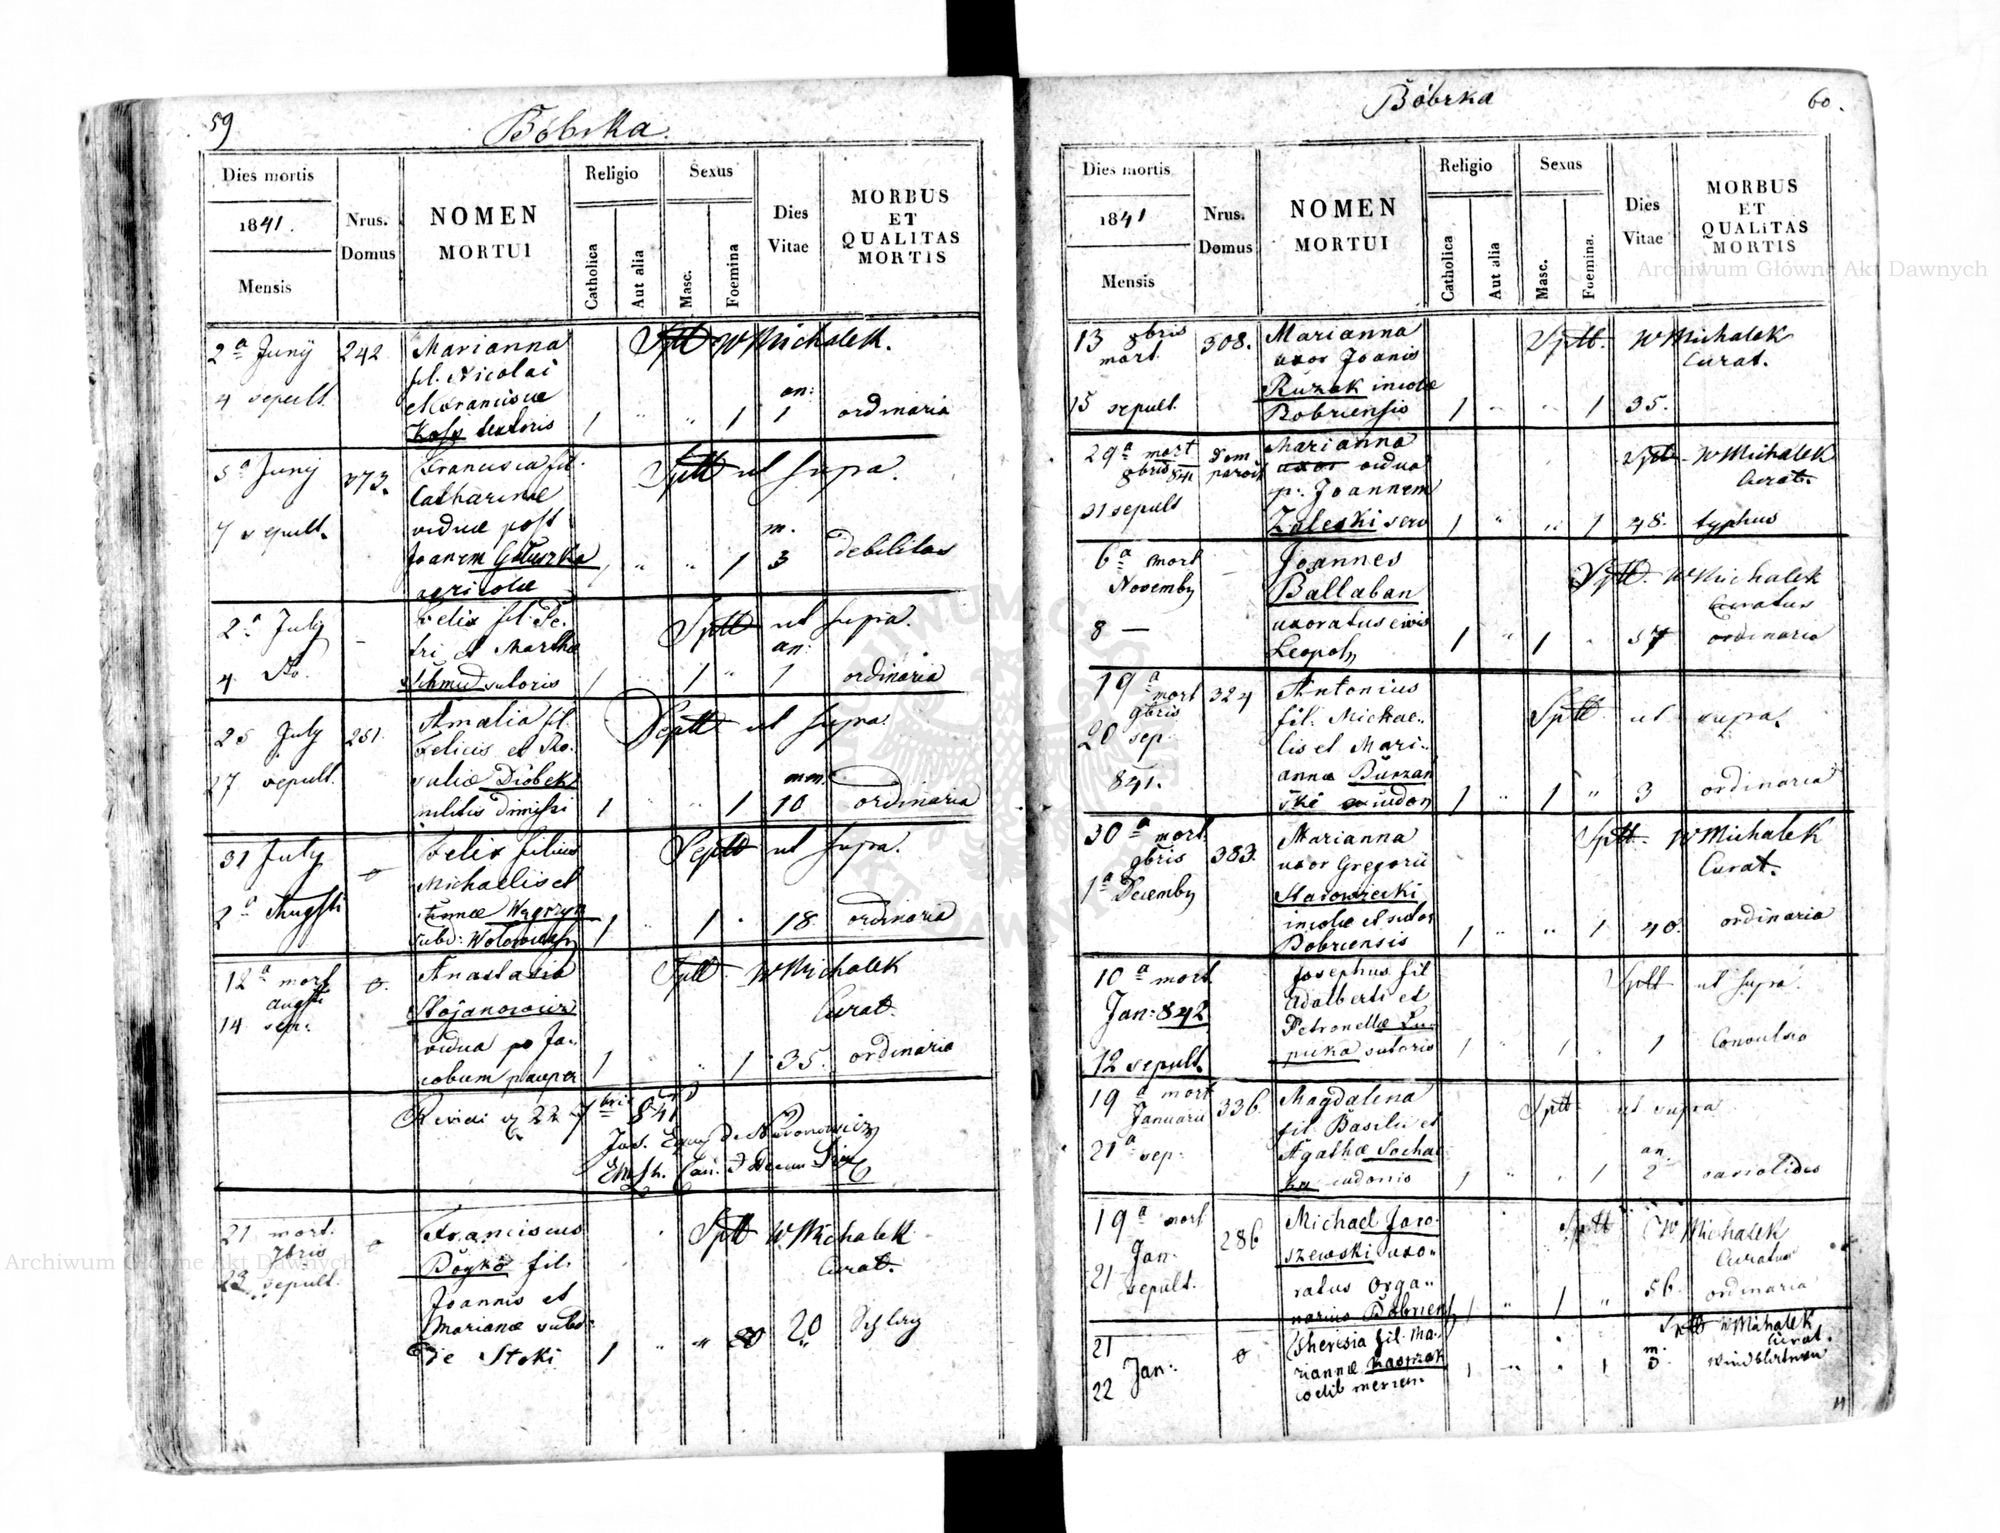 59
Bóbrka.
Dies mortis
1841.
Mensis
Nrus.
Domus
NOMEN
MORTUI
Religio
Catholica
Aut alia
Sexus
Masc.
Foemina
Dies
Vitae
MORBUS
ET
QUALITAS
MORTIS
2ª Junij 242. Marianna Sptt W Michalek.
fil. Nicolai
4 sepult. et Franciscae an:
textoris 1 " " 1 1 ordinaria
5ª Junij 373. Francisca fil. Sptt ut supra.
Catharinae
7 sepult. viduae post m.
Joanem Gałuszka 1 " " 1 3 debilitas
agricolae
2ª July – Felix fil. Pe- Sptt ut supra.
tri et Marthae an:
4 Schmid sutoris 1 1 " 1 ordinaria
25 July 251. Amalia fil. Septt ut supra.
Felicis et Ro-
27 sepult. saliae mm.
militis dimissi 1 " " 1 10 ordinaria
31 July o Felix filius Septt ut supra.
Michaelis et
2ª Augsti Annae Węgrzyn 1 1 " 18. ordinaria
subd:
12ª mort o. Anastasia Sptt. W Michalek
Augsti Stojanowicz Curat.
14 sep: vidua po Ja-
cobum pauper 1 " " 1 35. ordinaria
22 7bris 841
21 mort. o Franciscus Sptt W. Michalek
7bris Boyko fil. Curat.
23 sepult. Joannis et
Marianae subd:
de Stoki 1 " " 20 20
Bóbrka
60.
Dies mortis
1841
Mensis
Nrus.
Domus
NOMEN
MORTUI
Religio
Catholica
Aut alia
Sexus
Masc.
Foemina.
Dies
Vitae
MORBUS
ET
QUALITAS
MORTIS
13 8bris 308. Marianna Sptt. W Michalek
mort. uxor Joanis Curat.
Ruzak incolae
15 sepult. Bobrcensis 1 " " 1 35.
29ª mort Dom Marianna Sptt W Michalek
8bris 841 paroch uxor vidua Curat.
p: Joannem
31 sepult Zaleski 1 " " 1 48. typhus
6ª mort – Joannes Sptt. W Michalek
Novembr Ballaban Curatus
8 — uxoratus civis 1 " 1 " 37 ordinaria
Leopol
19ª mort 324 Antonius Sptt ut supra.
9bris fil. Michae-
20 sep. lis et Mari-
841. annae Burzań
ski 1 " 1 " 3 ordinaria
30ª mort. 383. Marianna Sptt. W Michalek
9bris uxor Gregorii Curat.
1ª Decembr
incolae et sutor 1 " " 1 40. ordinaria
Bobrcensis
10ª mort. Josephus fil Sptt ut supra.
Adalberti et
Jan: 842 Petronellae Łu-
12 sepult. picka sutoris 1 1 " 1 Convulsio
19ª mort 336. Magdalena Sptt ut supra
Januarii fil. Basilii et
21ª sep: Agathae Sochac an.
ka iudonis 1 " " 1 2 variolides
19ª mort 286 Michael Jaro- Sptt W Michalek
Jan: szewski uxo- Curatus
21 sepult. ratus Orga-
narius Bobrcens 1 " 1 " 56. ordinaria
21 Theresia fil. Ma- Sptt W Michalek
Jan: o riannae Kasprzak Curat.
22 1 " " 1 m.
Archiwum Główne Akt Dawnych
Archiwum Główne Akt Dawnych
ARCHIWUM GŁÓWNE AKT DAWNYCH